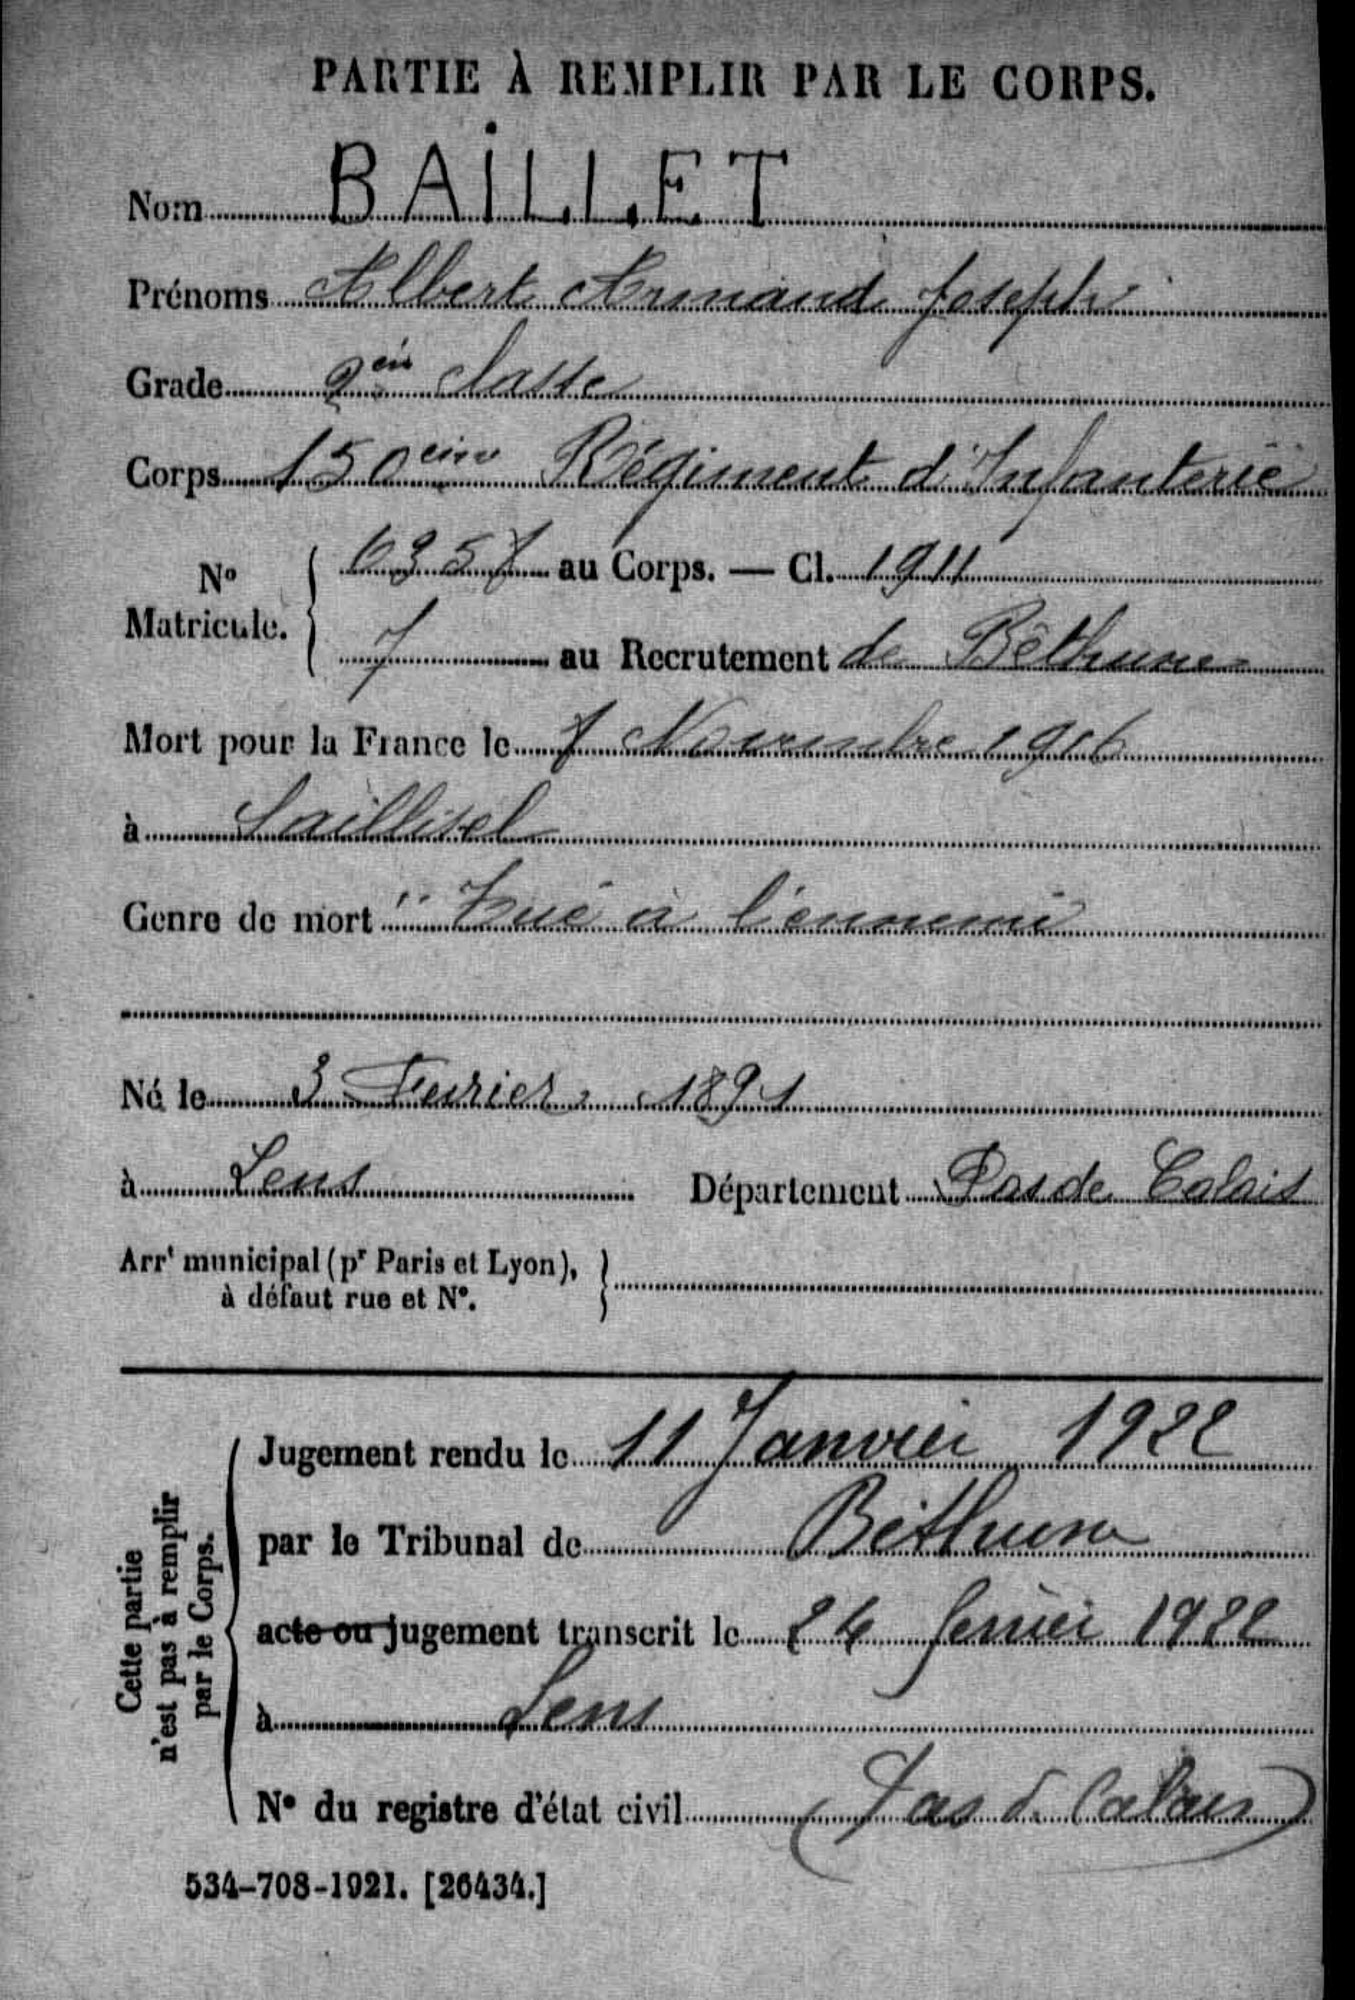 PARTIE À REMPLIR PAR LE CORPS.
Nom BAILLET
Prénoms Albert Armand Joseph
Grade 2èm classe
Corps 150eme Régiment d'Infanterie
No Matricule. 6357 au Corps. — Cl. 1911
7 au Recrutement de Béthune
Mort pour la France le 7 Novembre 1916
à Saillisel
Genre de mort Tué à l'ennemi
Né le 3 Fevrier 1891
à Lens Département Pas de Calais
Arrt municipal (pr Paris et Lyon),
à défaut rue et No.
Cette partie
n'est pas à remplir
par le Corps.
Jugement rendu le 11 Janvier 1922
par le Tribunal de Béthune
acte ou jugement transcrit le 24 fevrier 1922
à Lens
No du registre d'état civil (Pas d. Calais)
534-708-1921. [26434.]